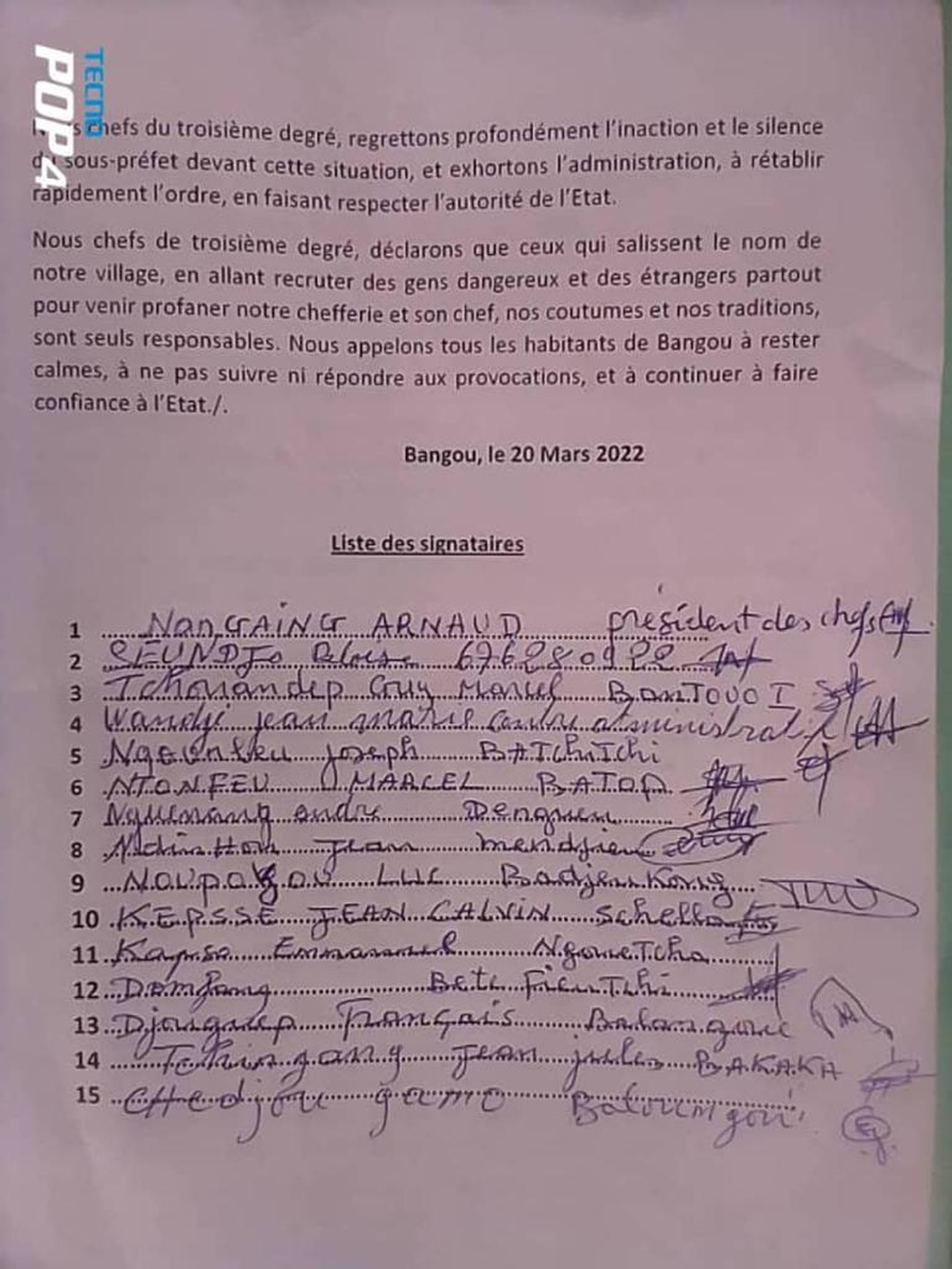 TECNO
POP 4
chefs du troisième degré, regrettons profondément l'inaction et le silence
du sous-préfet devant cette situation, et exhortons l'administration, à rétablir
rapidement l'ordre, en faisant respecter l'autorité de l'Etat.
Nous chefs de troisième degré, déclarons que ceux qui salissent le nom de
notre village, en allant recruter des gens dangereux et des étrangers partout
pour venir profaner notre chefferie et son chef, nos coutumes et nos traditions,
sont seuls responsables. Nous appelons tous les habitants de Bangou à rester
calmes, à ne pas suivre ni répondre aux provocations, et à continuer à faire
confiance à l'Etat./.
Bangou, le 20 Mars 2022
Liste des signataires
1 NanGAING ARNAUD président des chefs
2 SEUNDJO
3 Tchouandep Guy Marcel BanTOUO I
4 Wandji jean marie
5 Ngounteu Joseph BATChiTchi
6 NTONFEU MARCEL BATOP
7 andre Dengueu
8 Jean mendjieu
9 Noupagou LUC Badjeukong
10 KEPSSE JEAN CALVIN
11 Kapso Emmanuel NgoueTcha
12 Domfang
13 Djouguep Français
14 jean jules BAKAKA
15 Chedjou gamo Batoumgou